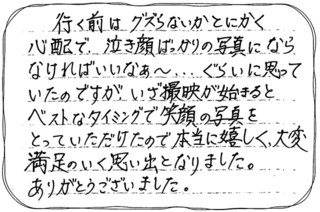 行く前はグズらないかとにかく
心配で、泣き顔ばっかりの写真になら
なければいいなぁ～...ぐらいに思って
いたのですが、いざ撮映が始まると
ベストなタイミングで笑顔の写真を
とっていただけたので本当に嬉しく、大変
満足のいく思い出となりました。
ありがとうございました。